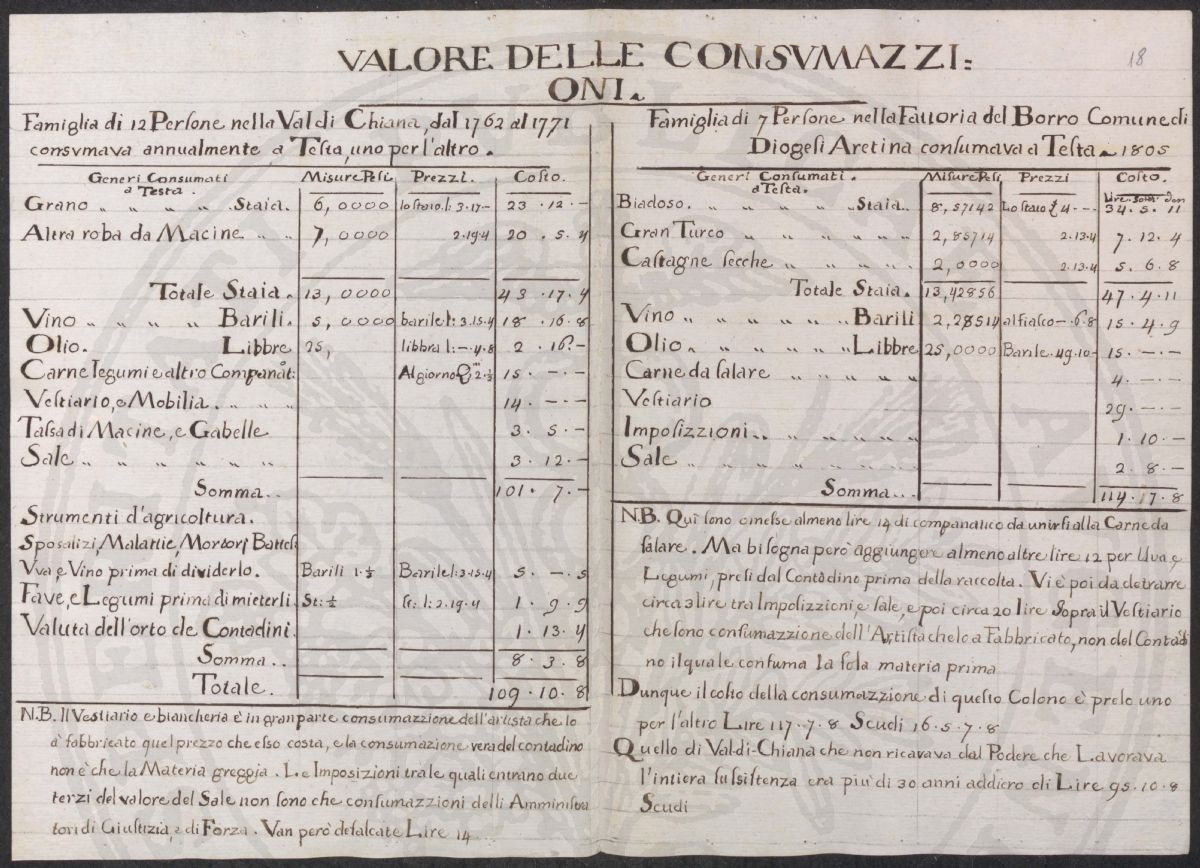 18
VALORE DELLE CONSVMAZZI=
ONI.
Famiglia di 12 Persone nella Val di Chiana, dal 1762 al 1771
consvmava annualmente a Testa, uno per l'altro.
Generi Consumati a Testa. Misure Pesi Prezzi. Costo.
Grano " " " " Staia. 6,0000 lo staio l: 3.17- 23.12.-
Altra roba da Macine " " 7,0000 2.19.4 20.5.4
Totale Staia. 13,0000 43.17.4
Vino " " " " Barili. 5,0000 barile l: 3.15.4 18.16.8
Olio. Libbre 25, libbra l: -.4.8 2.16.-
Carne legumi e altro Companat: Al giorno 2.½ 15.-.-
Vestiario, e Mobilia. " " " 14.-.-
Tassa di Macine, e Gabelle 3.5.-
Sale " " " " " " 3.12.-
Somma.. 101.7.-
Strumenti d'agricoltura.
Sposalizi, Malattie, Mortorj Battes
Vva, e Vino prima di dividerlo. Barili 1.½ Barile l: 3.15.4 5.-.5
Fave, e Legumi prima di mieterli St: ½ st: l: 2.19.4 1.9.9
Valuta dell'orto de Contadini. 1.13.4
Somma.. 8.3.8
Totale. 109.10.8
N.B. Il Vestiario e biancheria è in gran parte consumazzione dell'artista che lo
à fabbricato quel prezzo che esso costa, e la consumazione vera del contadino
non è che la Materia greggia. Le Imposizioni tra le quali entrano due
terzi del valore del Sale non sono che consumazzioni delli Amministra
tori di Giustizia, e di Forza. Van però desalcate Lire 14
Famiglia di 7 Persone nella Fattoria del Borro Comune di
Diogesi Aretina consumava a Testa. 1805
Generi Consumati. a Testa. Misure Pesi Prezzi Costo.
Lire Soldi den
Biadoso. " " " " " Staia. 8,57142 Lo staio £ 4.-- 34.5.11
Gran Turco " " " " " " 2,85714 2.13.4 7.12.4
Castagne secche " " " " " 2,0000 2.13.4 5.6.8
Totale Staia. 13,42856 47.4.11
Vino " " " " " Barili 2,28514 al fiasco -.6.8 15.4.9
Olio. " " " " " Libbre 25,0000 Barile.49.10- 15.-.-
Carne da salare " " " " " 4.-.-
Vestiario 29.-.-
Imposizzioni.. " " " " " 1.10.-
Sale " " " " " " " 2.8.-
Somma... 114.17.8
N.B. Qui sono omesse almeno lire 14 di companatico da unirsi alla Carne da
salare. Ma bisogna però aggiungere almeno altre lire 12 per Uva, e
Legumi, presi dal Contadino prima della raccolta. Vi è poi da detrarre
circa 3 lire tra Imposizzioni, e sale, e poi circa 20 lire sopra il Vestiario
che sono consumazzione dell'Artista che lo a Fabbricato, non del Contadi
no il quale consuma la sola materia prima
Dunque il costo della consumazzione di questo Colono è preso uno
per l'altro Lire 117.7.8 Scudi 16.5.7.8
Quello di Val-di-Chiana che non ricavava dal Podere che Lavorava
l'intiera sussistenza era più di 30 anni addiero di Lire 95.10.8
Scudi